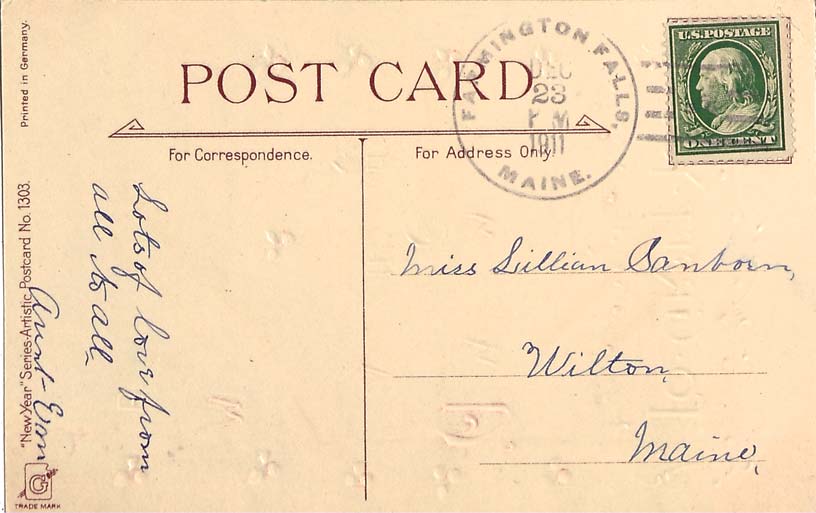 Printed in Germany.
POST CARD
FARMINGTON FALLS,
DEC
23
P M
1911
MAINE.
U.S. POSTAGE
ONE CENT
For Correspondence.
For Address Only.
Lots of love from
all to all
Aunt
Miss Lillian Sanborn,
Wilton,
Maine,
"New Year" Series-Artistic Postcard No. 1303.
G
TRADE MARK